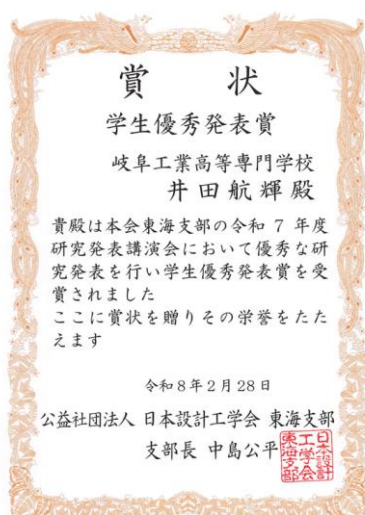 賞 状
学生優秀発表賞
岐阜工業高等専門学校
井田航輝殿
貴殿は本会東海支部の令和 7 年度
研究発表講演会において優秀な研
究発表を行い学生優秀発表賞を受
賞されました
ここに賞状を贈りその栄誉をたた
えます
令和8年2月28日
公益社団法人 日本設計工学会 東海支部
支部長 中島公平
日本設計
工学会
東海支部